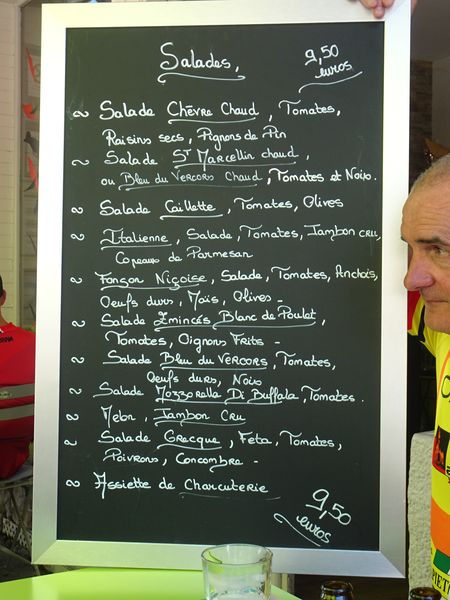 Salades,
9,50
euros
~ Salade Chèvre Chaud, Tomates,
Raisins secs, Pignons de Pin
~ Salade St Marcellin chaud,
ou Bleu du Vercors Chaud, Tomates et Noix.
~ Salade Caillette, Tomates, Olives
~ Italienne, Salade, Tomates, Jambon cru,
Copeaux de Parmesan
~ Façon Niçoise, Salade, Tomates, Anchois,
Oeufs durs, Maïs, Olives -
~ Salade Émincés Blanc de Poulet,
Tomates, Oignons Frits -
~ Salade Bleu du Vercors, Tomates,
Oeufs durs, Noix
~ Salade Mozzorella Di Buffala, Tomates.
~ Melon, Jambon Cru
~ Salade Grecque, Feta, Tomates,
Poivrons, Concombre -
~ Assiette de Charcuterie
9,50
euros